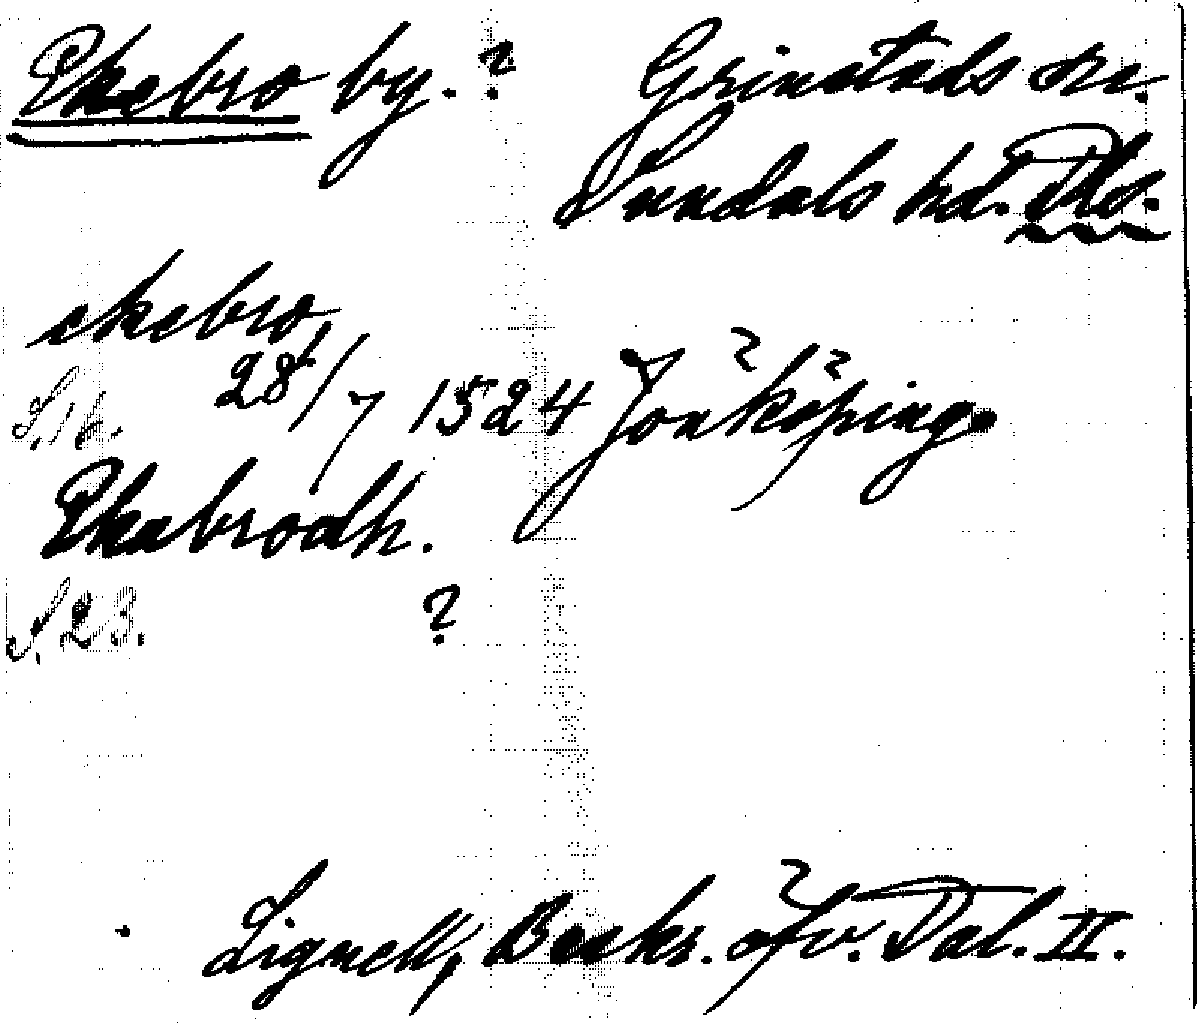 Ekebro by. ? Grinstads sn.
Sundals hd. Dls.
ekebro,
28/7 1524 Jönköping.
S. 16.
Ekabrodh.
S. 23. ?
Lignell, Beskr. öfv. Dal. II.